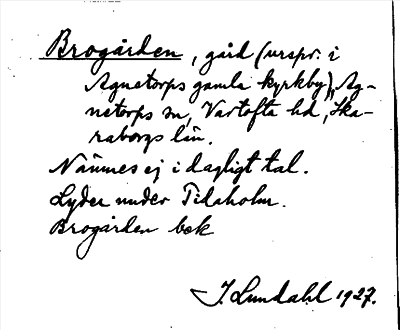 Brogården, gård (urspr. i
Agnetorps gamla kyrkby), Ag-
netorps sn, Vartofta hd, Ska-
raborgs län.
Nämnes ej i dagligt tal.
Lyder under Tidaholm.
Brogården bok
J. Lundahl 1927.